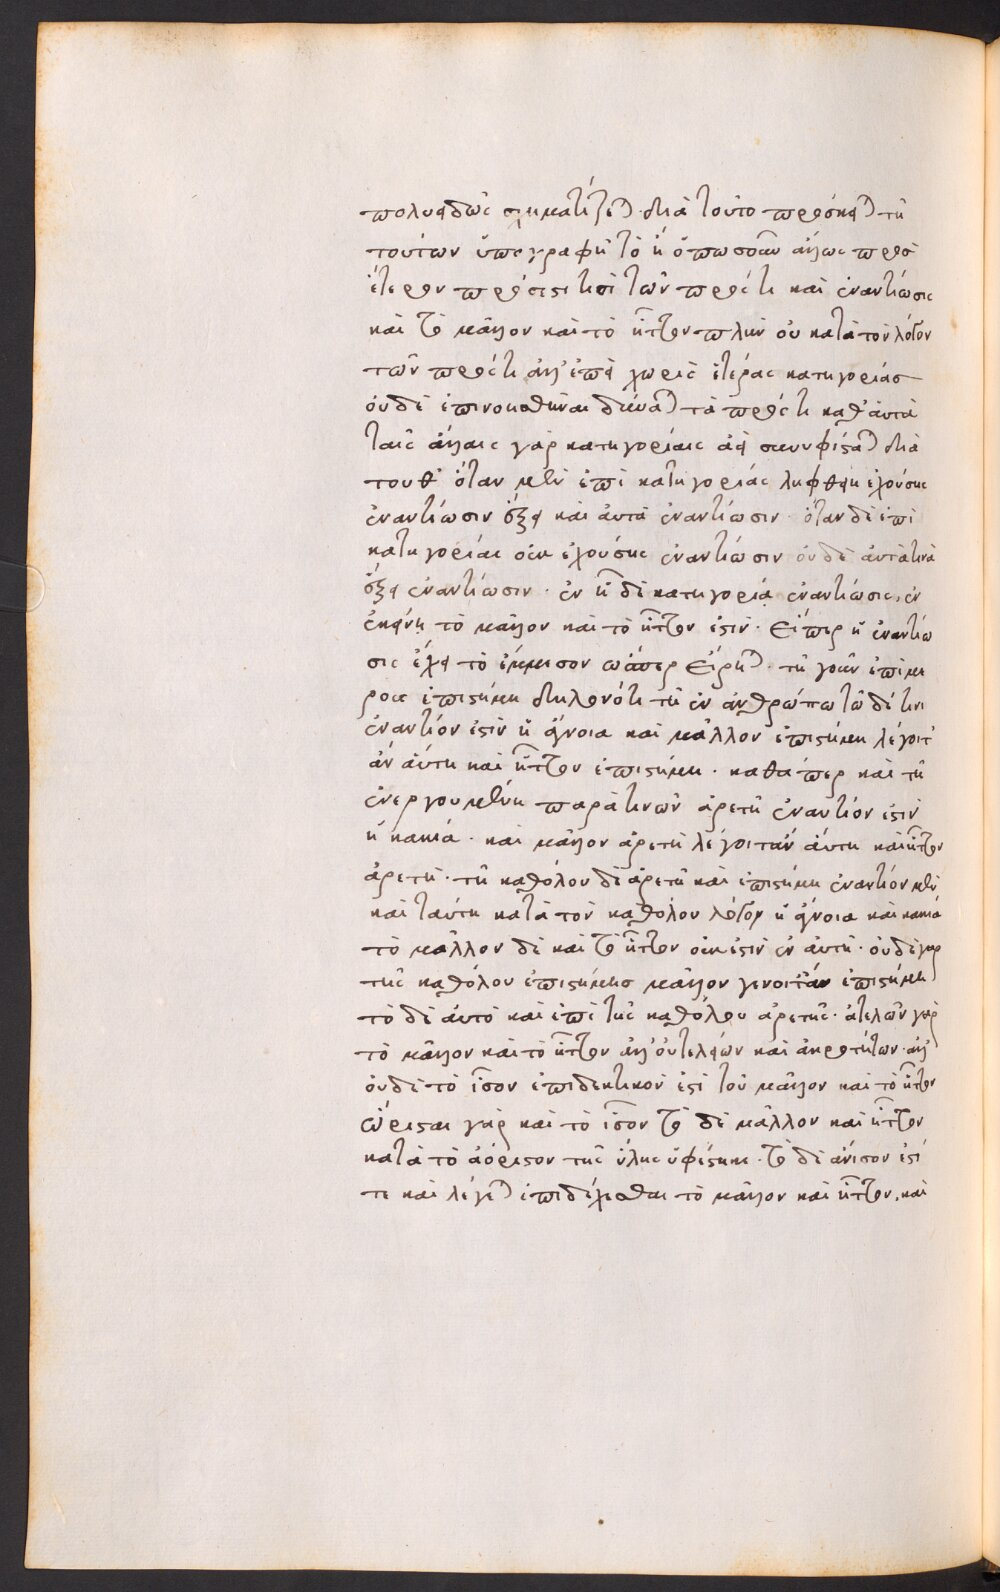 πολυειδῶς σχηματίζεται· διὰ τοῦτο πρόσκειται τῇ
τούτων ὑπογραφῇ τὸ ἢ ὁπωσοῦν ἄλλως πρὸς
ἕτερον πρόσεστι τοῖς τῶν πρός τι καὶ ἐναντίωσις
καὶ τὸ μᾶλλον καὶ τὸ ἧττον πλὴν οὐ κατὰ τὸν λόγον
τῶν πρός τι ἀλλ' ἐπεὶ χωρὶς ἑτέρας κατηγορίας
οὐδὲ ἐπινοηθῆναι δύναται τὰ πρός τι καθ' αὑτὰ
ταῖς ἄλλαις γὰρ κατηγορίαις ἀεὶ συνυφίσταται διὰ
τοῦθ' ὅταν μὲν ἐπὶ κατηγορίας ληφθῇ ἐχούσης
ἐναντίωσιν ἕξει καὶ αὐτὰ ἐναντίωσιν· ὅταν δὲ ἐπὶ
κατηγορίας οὐκ ἐχούσης ἐναντίωσιν οὐδὲ αὐτά τινα
ἕξει ἐναντίωσιν· ἐν ᾗ δὲ κατηγορίᾳ ἐναντίωσις, ἐν
ἐκείνῃ τὸ μᾶλλον καὶ τὸ ἧττόν ἐστιν· Εἴπερ ἡ ἐναντίω
σις ἔχει τὸ ἔμμεσον ὥσπερ εἴρηται· τῇ γοῦν ἐπὶ με
ρους ἐπιστήμῃ δηλονότι τῇ ἐν ἀνθρώπῳ τῷ δέ τινι
ἐναντίον ἐστὶν ἡ ἄγνοια καὶ μᾶλλον ἐπιστήμη λέγοιτ'
ἂν αὕτη καὶ ἧττον ἐπιστήμη· καθάπερ καὶ τῇ
ἐνεργουμένῃ παρά τινων ἀρετῇ ἐναντίον ἐστὶν
ἡ κακία· καὶ μᾶλλον ἀρετὴ λέγοιτ ἂν αὕτη καὶ ἧττον
ἀρετή· τῇ καθόλου δὲ ἀρετῇ καὶ ἐπιστήμῃ ἐναντίον μὲν
καὶ ταύτῃ κατὰ τὸν καθόλου λόγον ἡ ἄγνοια καὶ κακία
τὸ μᾶλλον δὲ καὶ τὸ ἧττον οὐκ ἔστιν ἐν αὐτῇ· οὐδὲ γὰρ
τῆς καθόλου ἐπιστήμης μᾶλλον γένοιτ ἂν ἐπιστήμη
τὸ δὲ αὐτὸ καὶ ἐπὶ τῆς καθόλου ἀρετῆς· ἀτελῶν γὰρ
τὸ μᾶλλον καὶ τὸ ἧττον ἀλλ' οὐ τελείων καὶ ἀκροτήτων· ἀλλ'
οὐδὲ τὸ ἴσον ἐπιδεκτικόν ἐστι τοῦ μᾶλλον καὶ τὸ ἧττον
ὥρισται γὰρ καὶ τὸ ἴσον τὸ δὲ μᾶλλον καὶ ἧττον
κατὰ τὸ ἀόριστον τῆς ὕλης ὑφέστηκε· τὸ δὲ ἄνισον ἔστι
τε καὶ λέγεται ἐπιδέχεσθαι τὸ μᾶλλον καὶ ἧττον, καὶ